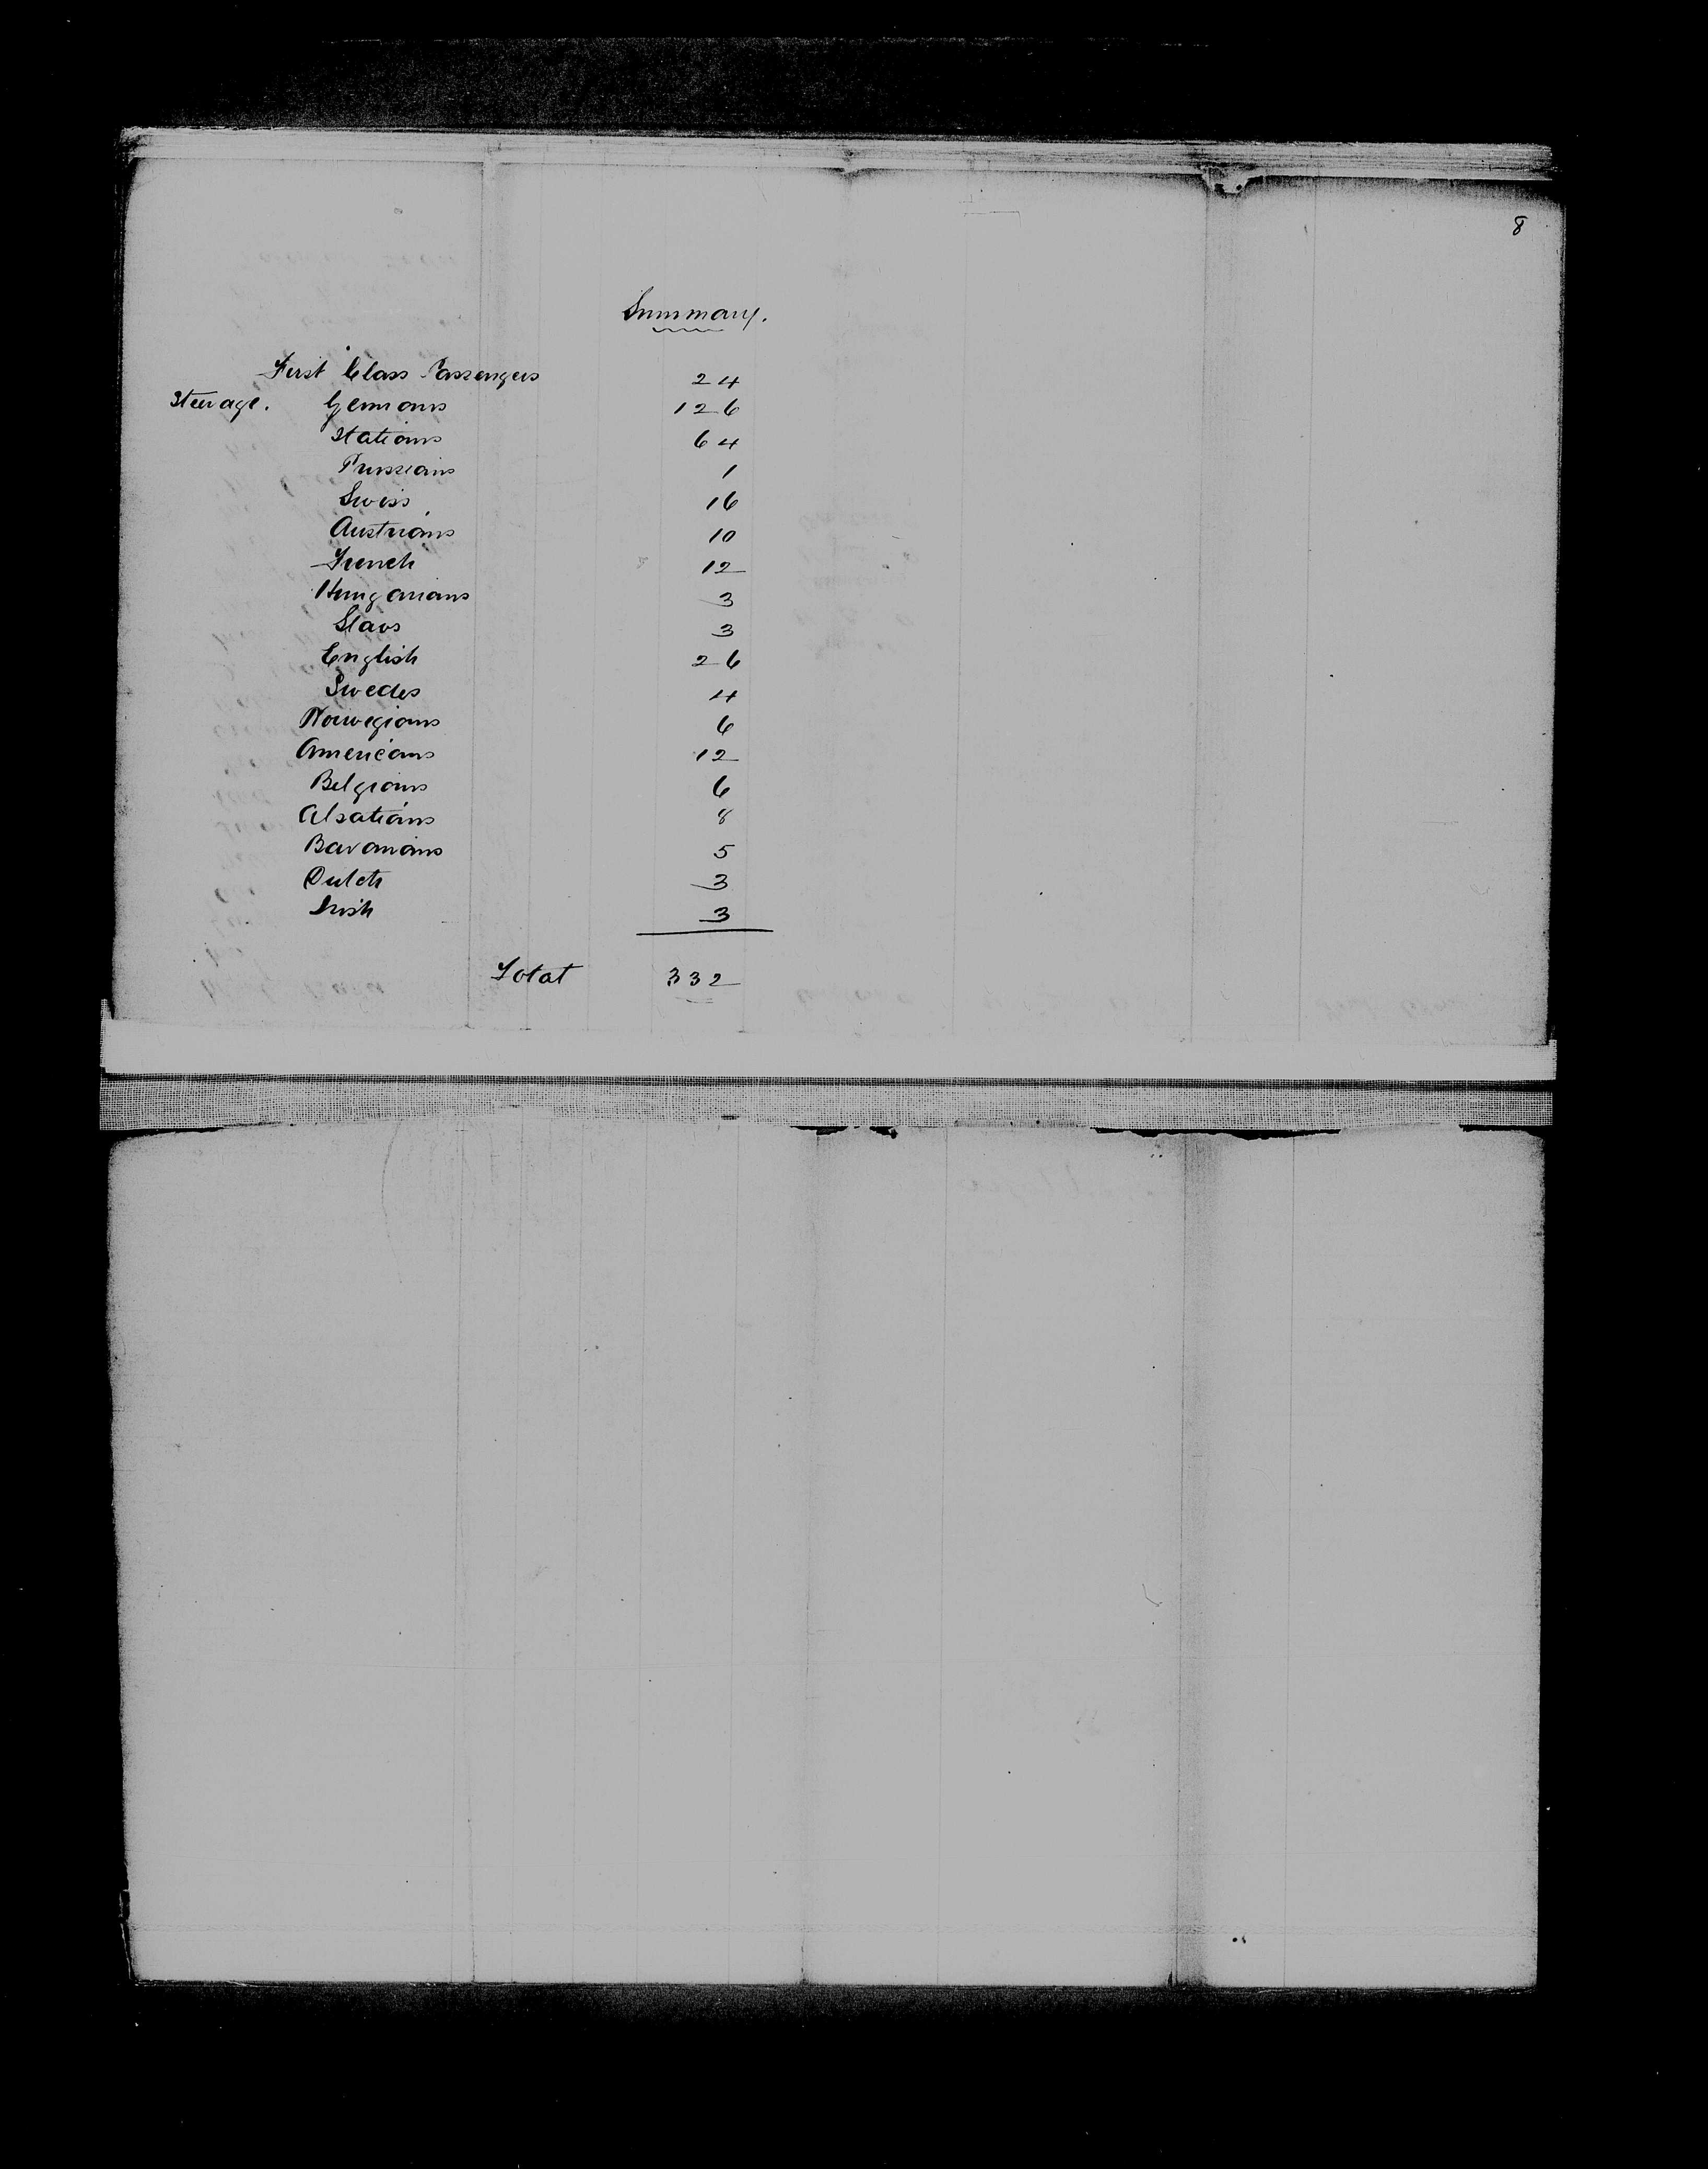 8
Summary.
First Class Passengers 24
Steerage. Germans 126
Italians 64
Prussians 1
Swiss 16
Austrians 10
French 12
Hungarians 3
Slavs 3
English 26
Swedes 4
Norwegians 6
Americans 12
Belgians 6
Alsatians 8
Bavarians 5
Dutch 3
Irish 3
Total 332